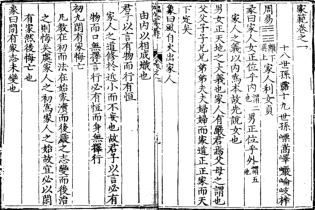 家範卷之一
十八世孫露十九世孫
周易䷤離下巽上家人利女貞
彖曰家人女正位乎內謂二也男正位乎外謂五也
家人之義以內為本故先說女也
男女正天地之大義也家人有嚴君焉父母之謂也
父父子子兄兄弟弟夫夫婦婦而家道正正家而天
下定矣
象曰風自火出家人
由內以相成熾也
君子以言有物而行有恆
家人之道脩於近小而不妄也故君子以言必有
物而口無擇言行必有恆而身無擇行
初九閑有家悔亡
凡教在初而法在始家瀆而後嚴之志變而後治
之則悔矣處家人之初為家人之始故宜必以閑
有家然後悔亡也
象曰閑有家志未變也